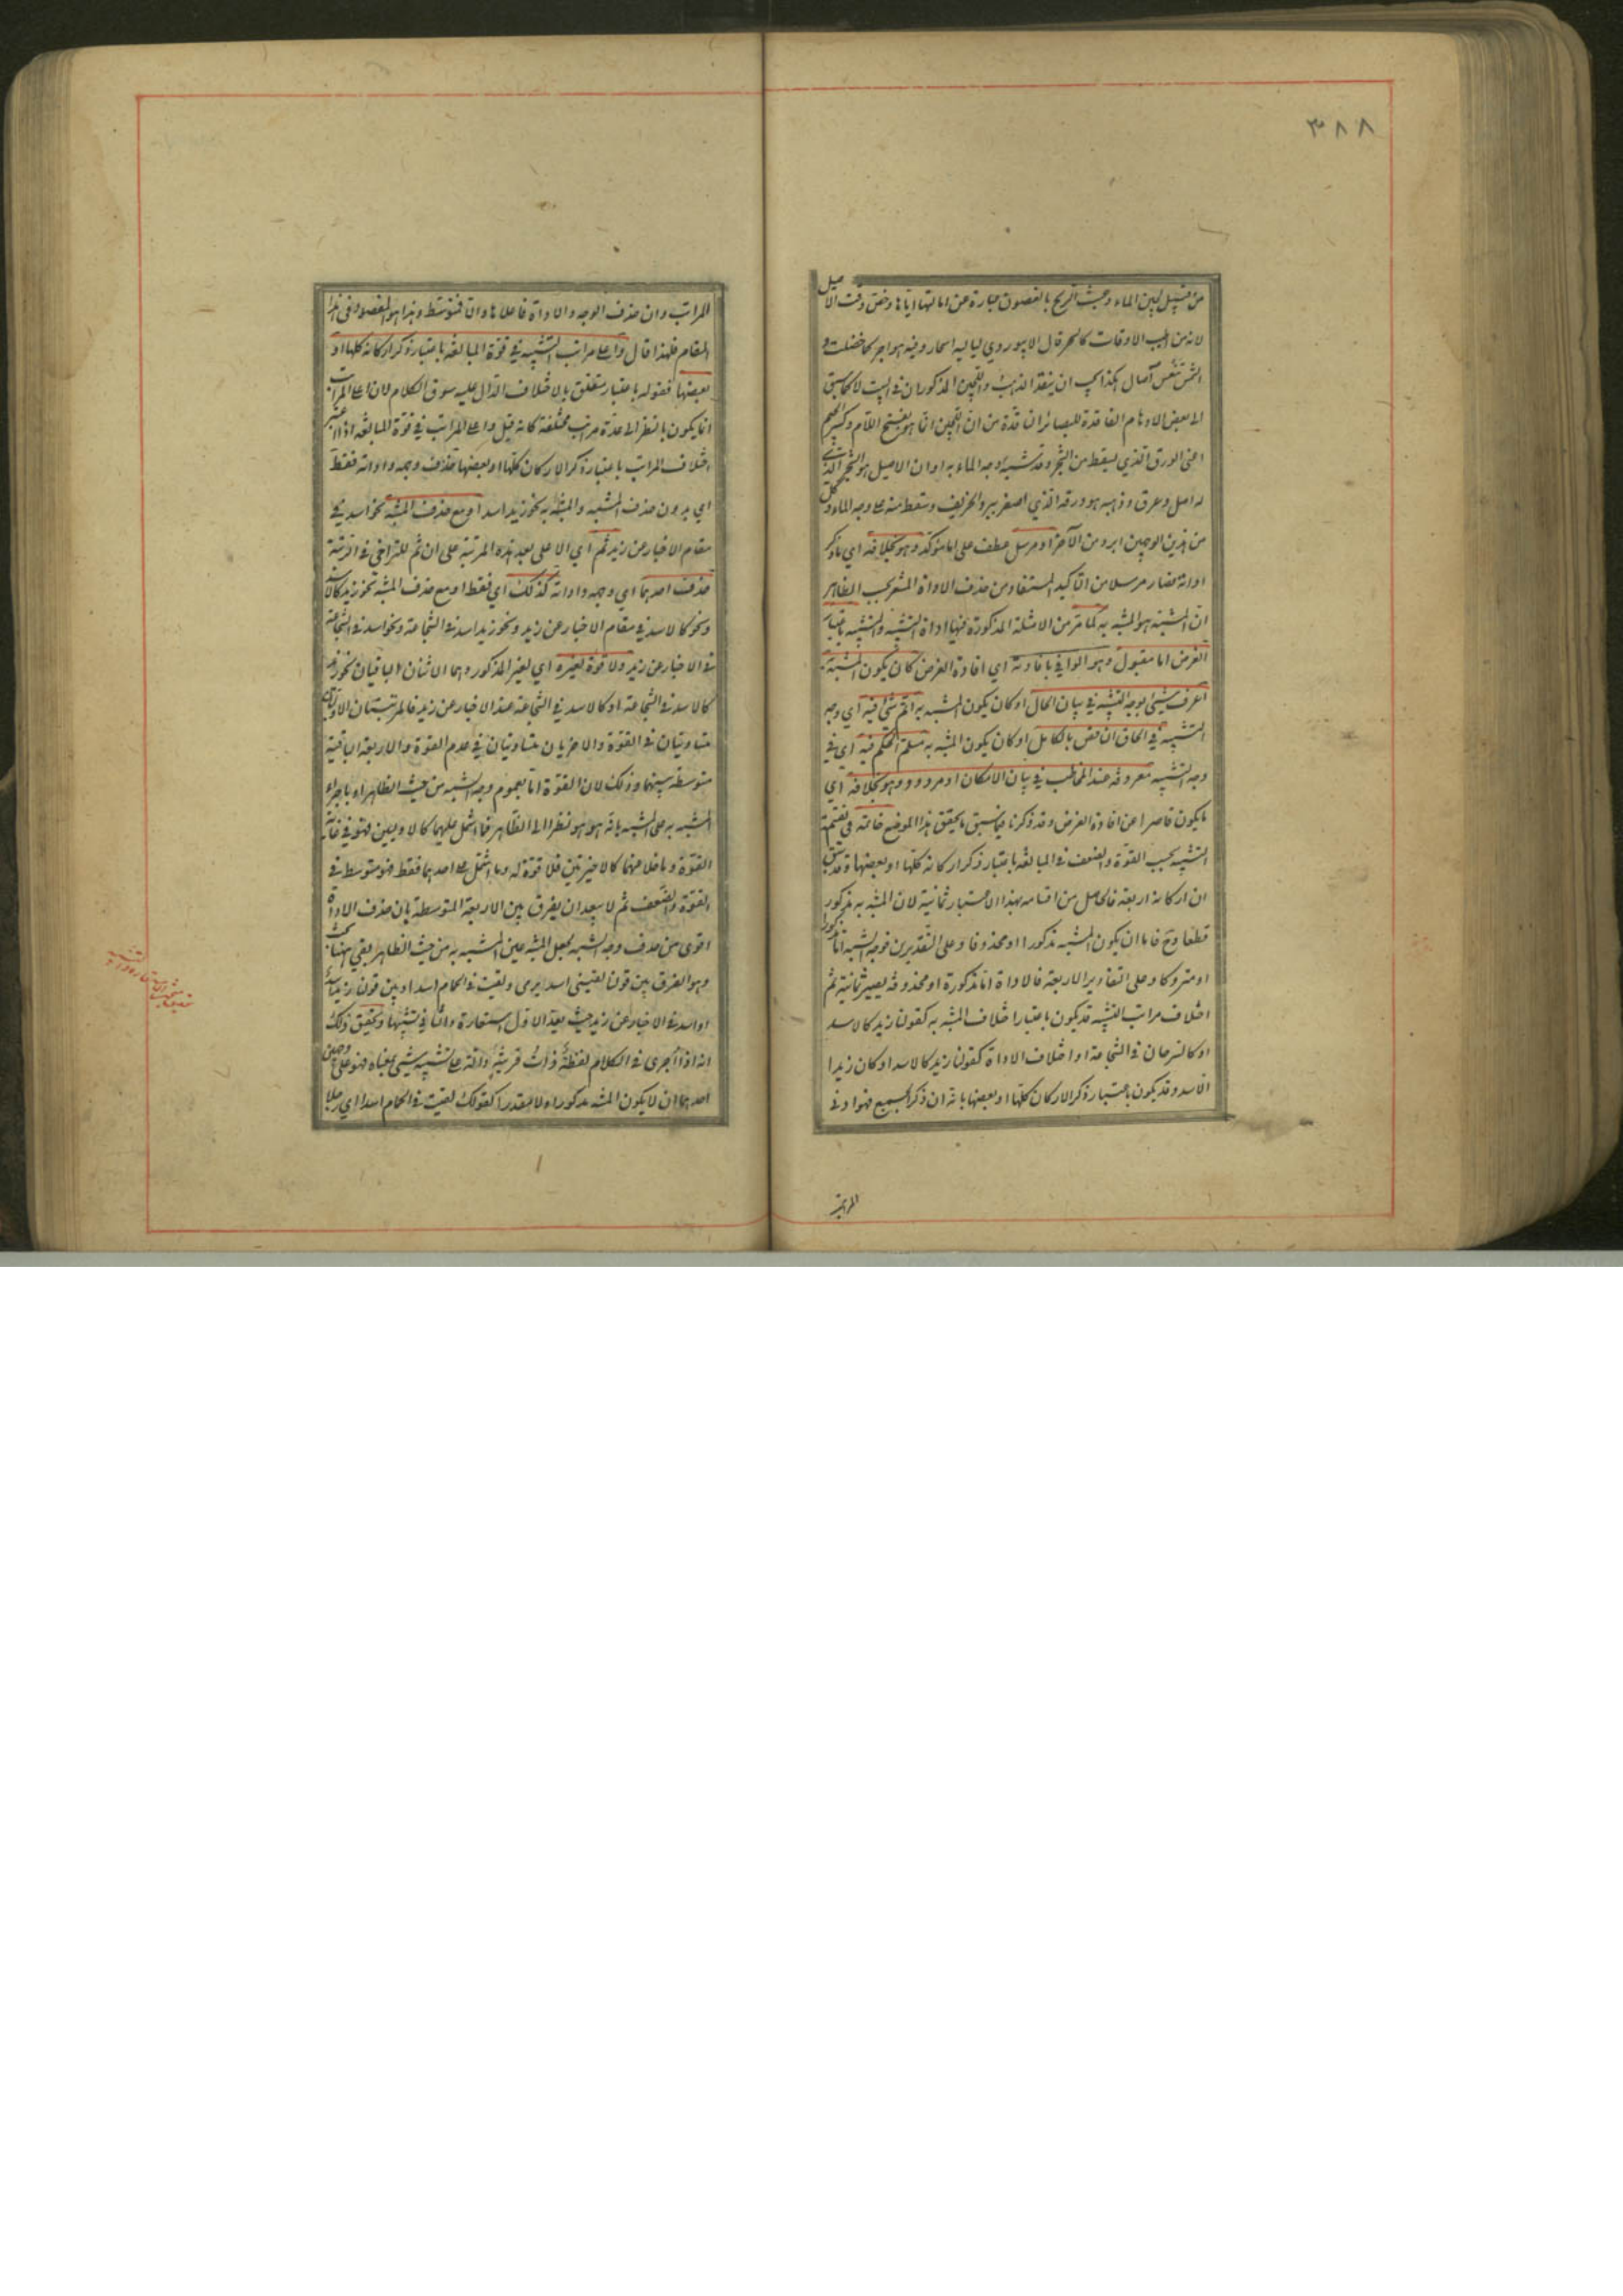 ٣٨٨
من قبيل لجين الماء وعبث الريح بالغصون عبارة عن امالتها اياها وخص وقت الاصيل
لانه من اطيب الاوقات كالسحر قال الابيوردي لياليه اسحار وفيه هواجر كما خضلت و
الشمس تنعس آصال هكذا يجب ان ينقد الذهب واللجين المذكوران في البيت لا كما سبق
الى بعض الاوهام الفاقدة للبصائر الناقدة من ان اللجين انما هو بفتح اللام وكسر الجيم
اعنى الورق الذي يسقط من الشجر وقد شبه به وجه الماء او ان الاصيل هو الشجر الذي
له اصل وعرق وذهبه هو ورقه الذي اصفر ببرد الخريف وسقط منه على وجه الماء وكل
من هذين الوجهين ابرد من الآخر او مرسل عطف على اما مؤكد وهو بخلافه اي ما ذكر
اداته فصار مرسلا من التأكيد المستفاد من حذف الاداة المشعر بحسب الظاهر
ان المشبه هو المشبه به كما مر من الامثلة المذكورة فيها اداة التشبيه والتشبيه باعتبار
الغرض اما مقبول وهو الوافي بافادته اي افادة الغرض كان يكون المشبه به
اعرف شيئ بوجه التشبيه في بيان الحال او كان يكون المشبه به اتم شئ فيه اي وجه
التشبيه في الحاق الناقص بالكامل او كان يكون المشبه به مسلم الحكم فيه اي في
وجه التشبيه معروفه عند المخاطب في بيان الامكان او مردود وهو بخلافه اي
ما يكون قاصرا عن افادة الغرض وقد ذكرنا فيما سبق ما يحقق هذا الموضع خاتمة في تقسيم
التشبيه بحسب القوة والضعف في المبالغة باعتبار ذكر اركانه كلها او بعضها وقد سبق
ان اركانه اربعة فالحاصل من اقسامه بهذا الاعتبار ثمانية لان المشبه به مذكور
قطعا وح فاما ان يكون المشبه مذكورا او محذوفا وعلى التقديرين فوجه الشبه اما مذكور
او متروك وعلى التقادير الاربعة فالاداة اما مذكورة او محذوفة يصير ثمانية ثم
اختلاف مراتب التشبيه قد يكون باعتبار اختلاف المشبه به كقولنا زيد كالاسد
او كالسرحان في الشجاعة او اختلاف الاداة كقولنا زيد كالاسد او كان زيدا
الاسد وقد يكون باعتبار ذكر الاركان كلها او بعضها بانه ان ذكر الجميع فهو ادنى
المراتب
المراتب وان حذف الوجه والاداة فاعلاها والا فمتوسط وهذا هو المقصود في هذا
المقام فلهذا قال واعلى مراتب التشبيه في قوة المبالغة باعتبار ذكر اركانه كلها او
بعضها فقوله باعتبار متعلق بالاختلاف الدال عليه سوق الكلام لان اعلى المراتب
انما يكون بالنظر الى عدة مراتب مختلفة كانه قيل واعلى المراتب في قوة المبالغة اذا اعتبر
اختلاف المراتب باعتبار ذكر الاركان كلها او بعضها حذف وجهه واداته فقط
اي بدون حذف المشبه والمشبه به نحو زيد اسد او مع حذف المشبه نحو اسد في
مقام الاخبار عن زيد ثم اي الاعلى بعد هذه المرتبة على ان ثم للتراخي في الرتبة
حذف احدهما اي وجهه واداته كذلك اي فقط او مع حذف المشبه نحو زيد كالاسد
ونحو كالاسد في مقام الاخبار عن زيد ونحو زيد اسد في الشجاعة ونحو اسد في الشجاعة
في الاخبار عن زيد ولا قوة لغيره اي لغير المذكور وهما الاثنان الباقيان نحو زيد
كالاسد في الشجاعة او كالاسد في الشجاعة عند الاخبار عن زيد فالمرتبتان الاوليان
متساويتان في القوة والاخريان متساويتان في عدم القوة والاربعة الباقية
متوسطة بينهما وذلك لان القوة اما بعموم وجه الشبه من حيث الظاهر او باجراء
المشبه به على المشبه بانه هو هو نظرا الى الظاهر فما اشتمل عليهما كالاوليين فهو في غاية
القوة وما خلا عنهما كالاخيرتين فلا قوة له وما اشتمل على احدهما فقط فهو متوسط في
القوة والضعف ثم لا يبعد ان يفرق بين الاربعة المتوسطة بان حذف الاداة
اقوى من حذف وجه الشبه لجعل المشبه عين المشبه به من حيث الظاهر بقي ههنا بحث
وهو الفرق بين قولنا لقيني اسد يرمى ولقيت في الحمام اسدا وبين قولنا زيد اسد
او اسد في الاخبار عن زيد حيث يعد الاول استعارة والثاني تشبيها وتحقيق ذلك
انه اذا اجرى في الكلام لفظة ذات قرينة دالة على تشبيه شيئ بمعناه فهو على وجهين
احدهما ان لا يكون المشبه مذكورا ولا مقدرا كقولك لقيت في الحمام اسدا اي رجلا